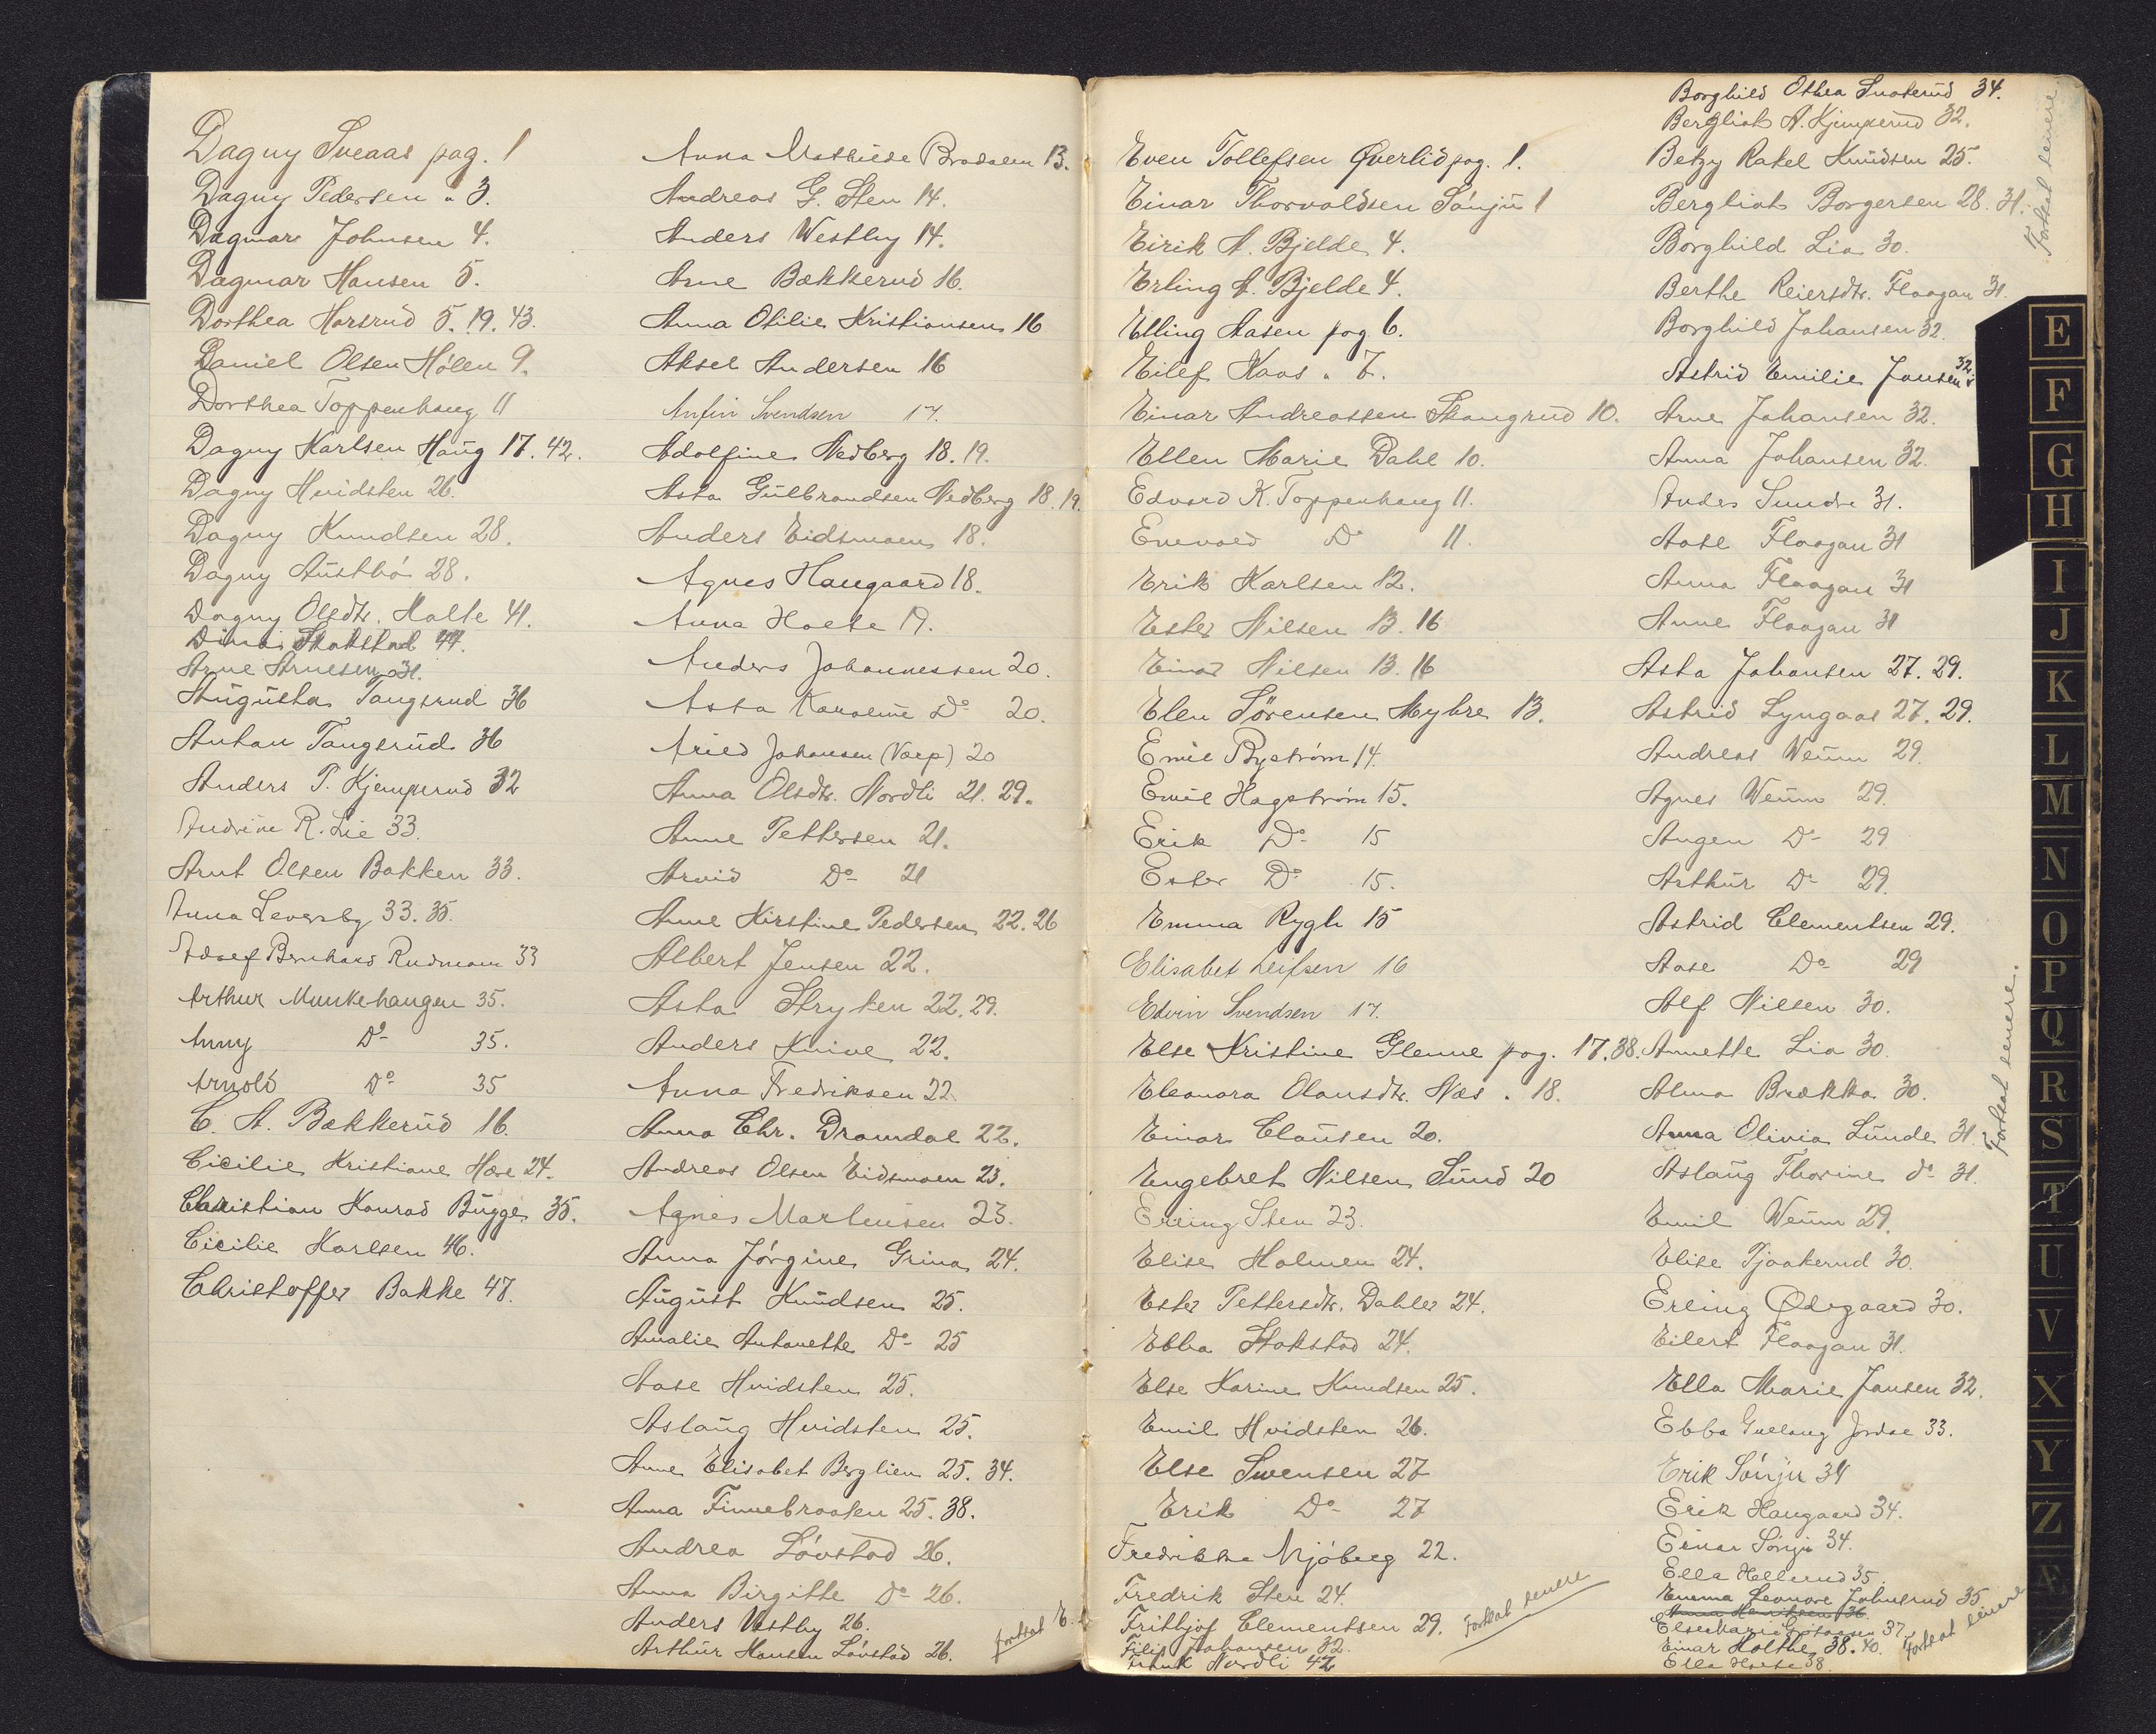 Dagny Sveaas pag. 1
Dagny Pedersen " 3.
Dagmar Johnsen 4.
Dagmar Hansen 5.
Dorthea Horsrud 5. 19. 43.
Daniel Olsen Hólen 9.
Dorthea Toppenhaug 11
Dagny Karlsen Haug 17. 42.
Dagny Hvidsten 26.
Dagny Knudsen 28.
Dagny Austbó 28.
Dagny Olsdtr. Holte 41.
Dina Stokstad 44.
Arne Arnesen 31.
Augusta Tangerud 36
Anton Tangerud 36
Anders P. Kjemperud 32
Andrine R. Lie 33.
Arnt Olsen Bakken 33.
Anna Leversby 33. 35.
Adolf Bernhard Rudmoen 33
Arthur Munkehaugen 35.
Anny Do 35.
Arnold Do 35
C. A. Bækkerud 16.
Cicilie Kristiane Høse 24.
Christian Konrad Bugge 35.
Cicilie Karlsen 46.
Christoffer Bakke 47.
Anna Mathilde Brodalen 13.
Andreas G. Sten 14.
Anders Westby 14.
Arne Bækkerud 16.
Anna Otilie Kristiansen 16
Aksel Andersen 16
Anfin Svendsen 17.
Adolfine Nedberg 18. 19.
Asta Gulbrandsen Nedberg 18. 19.
Anders Eidsmoen 18.
Agnes Haugaard 18.
Anna Holte 19.
Anders Johannessen 20.
Asta Karoline Do 20.
Arild Johansen (Varp) 20
Anna Olsdtr. Nordli 21. 29.
Anne Pettersen 21.
Arvid Do 21
Anne Kirstine Pedersen 22. 26
Albert Jensen 22.
Asta Stryken 22. 29.
Anders Knive 22.
Anna Fredriksen 22.
Anna Chr. Dramdal 22.
Andreas Olsen Eidsmoen 23.
Agnes Martinsen 23.
Anna Jórgine Grina 24.
August Knudsen 25.
Amalie Antonette Do 25
Aase Hvidsten 25.
Aslaug Hvidsten 25.
Anne Elisabet Berglien 25. 34.
Anna Finnebraaten 25. 38.
Andrea Lóvstad 26.
Anna Birgitte Do 26.
Anders Westby 26.
Arthur Hansen Lóvstad 26.
fortsat E.
Even Tollefsen Øverlid pag. 1.
Einar Thorvaldsen Sónju 1
Eirik A. Bjelde 4.
Erling A. Bjelde 4.
Elling Aasen pag 6.
Eilef Kaas " 7.
Einar Andreassen Skaugrud 10.
Ellen Marie Dahl 10.
Edvard K. Toppenhaug 11.
Enevold Do 11.
Erik Karlsen 12.
Ester Nilsen 13. 16
Einar Nilsen 13. 16
Elen Sörensen Myhre 13.
Emil Byström 14.
Emil Hagström 15.
Erik Do 15
Ester Do 15.
Emma Rygh 15
Elisabet Leifsen 16
Edvin Svendsen 17.
Else Kristine Glenne pag. 17. 38.
Eleonora Olausdtr. Næs " 18.
Einar Clausen 20.
Engebret Nilsen Sund 20
Erling Sten 23.
Elise Holmen 24.
Ester Pettersdtr. Dahler 24.
Ebba Stokstad 24.
Else Karine Knudsen 25.
Emil Hvidsten 26.
Else Svensen 27
Erik Do 27
Fredrikke Mjóberg 22.
Fredrik Sten 24.
Frithjof Clementsen 29. Fortsat senere
Filip Johansen 32.
Frank Nordli 42
Borghild Othea Snoterud 34.
Bergliot A. Kjemperud 32.
Betzy Rakel Knudsen 25.
Bergliot Borgersen 28. 31.
Borghild Lia 30.
Berthe Reiersdtr. Flaagan 31.
Borghild Johansen 32.
Fortsat senere
Astrid Emilie Jansen 32.
Arne Johansen 32.
Anna Johansen 32.
Anders Sundre 31.
Aase Flaagan 31
Anna Flaagan 31
Anne Flaagan 31
Asta Johansen 27. 29.
Astrid Lyngaas 27. 29.
Andreas Weum 29.
Agnes Weum 29.
Augen Do 29
Arthur Do 29.
Astrid Clementsen 29.
Aase Do 29
Alf Nilsen 30.
Annette Lia 30.
Alma Brækka 30.
Anna Olivia Lunde 31.
Aslaug Thorine do 31.
Fortsat senere.
Emil Weum 29.
Elise Tjaakerud 30.
Erling Ødegaard 30.
Eilert Flaagan 31.
Ella Marie Jansen 32.
Ebba Gullaug Jordal 33.
Erik Sónju 34
Erik Haugaard 34.
Einar Sónju 34.
Ella Hellerud 35.
Emma Leonore Johnsrud 35.
Anna Henriksen 36.
Else Marie 37.
Einar Holthe 38. 40. Fortsat senere
Ella Holte 38.
E
F
G
H
I
J
K
L
M
N
O
P
Q
R
S
T
U
V
X
Y
Z
Æ